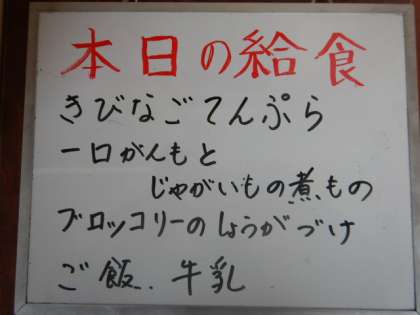 本日の給食
きびなごてんぷら
一口がんもと
じゃがいもの煮もの
ブロッコリーのしょうがづけ
ご飯. 牛乳